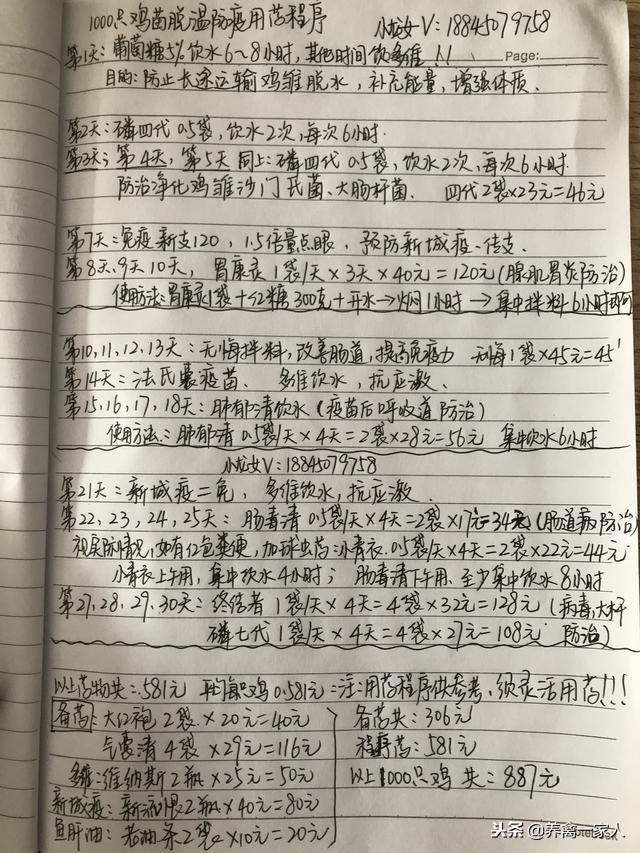 1000只鸡苗脱温防疫用药程序
小龙女V:18845079758
第1天:葡萄糖5%饮水6~8小时,其他时间饮多维!!
Page:
目的:防止长途运输鸡雏脱水,补充能量,增强体质.
第2天:磷四代0.5袋,饮水2次,每次6小时.
第3天;第4天,第5天同上:磷四代0.5袋,饮水2次,每次6小时.
防治净化鸡雏沙门氏菌、大肠杆菌. 四代2袋×23元=46元
第7天:免疫新支120,1.5倍量点眼,预防新城疫、传支.
第8天、9天10天,胃康灵1袋/天×3天×40元=120元(腺肌胃炎防治)
使用方法:胃康灵1袋+红糖300克+开水→焖1小时→集中拌料6小时即可
第10,11,12,13天:无悔拌料,改善肠道,提高免疫力 无悔1袋×45元=45
第14天:法氏囊疫苗. 多维饮水,抗应激.
第15,16,17,18天:肺郁清饮水(疫苗后呼吸道防治)
使用方法:肺郁清0.5袋/天×4天=2袋×28元=56元 集中饮水6小时
小龙女V:18845079758
第21天:新城疫二免,多维饮水,抗应激.
第22,23,24,25天:肠毒清0.5袋/天×4天=2袋×17元=34元(肠道病防治)
视实际情况,如有红色粪便,加球虫药:小青衣.0.5袋/天×4天=2袋×22元=44元
小青衣上午用,集中饮水4小时;肠毒清下午用.至少集中饮水8小时
第27,28,29,30天:终结者1袋/天×4天=4袋×32元=128元(病毒大杆
磷七代1袋/天×4天=4袋×27元=108元 防治)
以上药物共:581元 平均每只鸡0.581元 注:用药程序供参考,须灵活用药!!!
备药:大红袍2袋×20元=40元
气囊清4袋×29元=116元
多维:维纳斯2瓶×25元=50元
新城疫:新流恨2瓶×40元=80元
鱼肝油:若油条2袋×10元=20元
备药共:306元
程序药:581元
以上1000只鸡共:887元
头条@养禽一家人